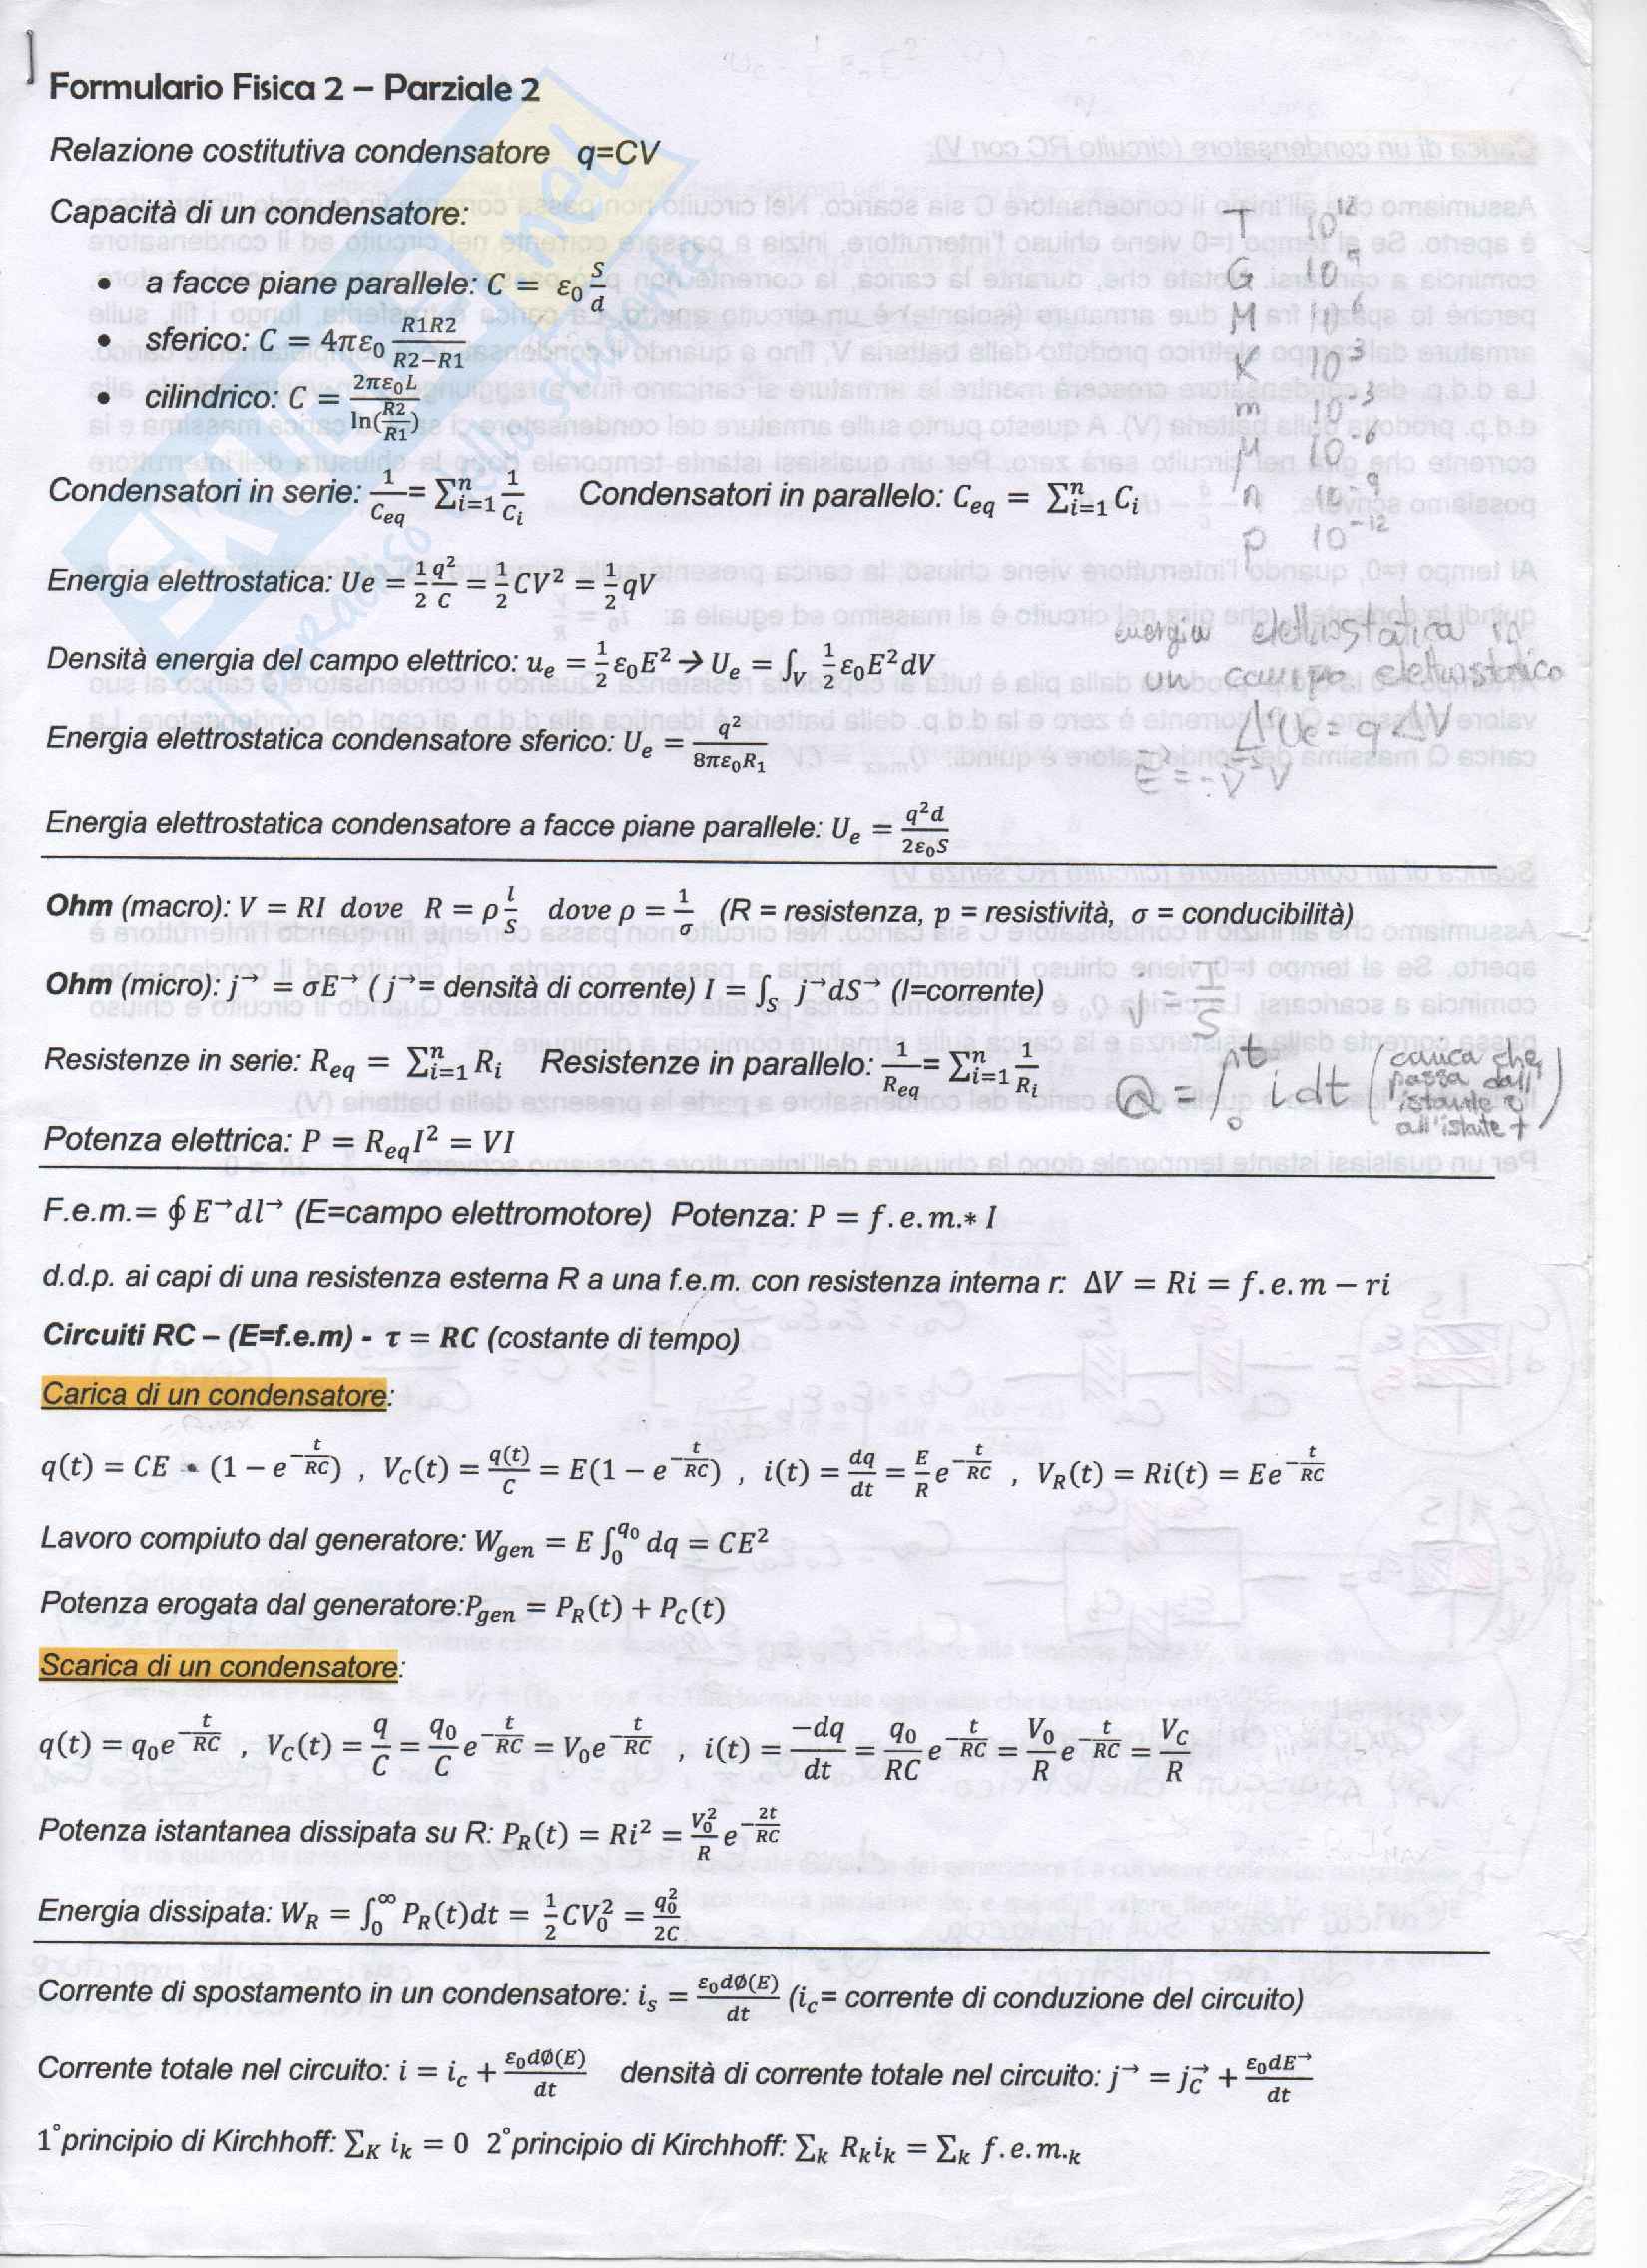 Formulario Fisica 2 – Parziale 2
Relazione costitutiva condensatore q=CV
Capacità di un condensatore:
• a facce piane parallele: C = ε₀ S/d
• sferico: C = 4πε₀ R1R2/(R2−R1)
• cilindrico: C = 2πε₀L/ln(R2/R1)
T 10¹²
G 10⁹
M 10⁶
K 10³
m 10⁻³
μ 10⁻⁶
n 10⁻⁹
p 10⁻¹²
Condensatori in serie: 1/C_eq = ∑ⁿᵢ₌₁ 1/Cᵢ Condensatori in parallelo: C_eq = ∑ⁿᵢ₌₁ Cᵢ
Energia elettrostatica: Ue = 1/2 q²/C = 1/2 CV² = 1/2 qV
Densità energia del campo elettrico: u_e = 1/2 ε₀E² → U_e = ∫_V 1/2 ε₀E²dV
energia elettrostatica in
un campo elettrostatico
ΔUe = qΔV
Energia elettrostatica condensatore sferico: U_e = q²/8πε₀R₁
Energia elettrostatica condensatore a facce piane parallele: U_e = q²d/2ε₀S
Ohm (macro): V = RI dove R = ρ l/S dove ρ = 1/σ (R = resistenza, p = resistività, σ = conducibilità)
Ohm (micro): j→ = σE→ ( j→= densità di corrente) I = ∫_S j→dS→ (I=corrente)
j = I/S
Resistenze in serie: R_eq = ∑ⁿᵢ₌₁ Rᵢ Resistenze in parallelo: 1/R_eq = ∑ⁿᵢ₌₁ 1/Rᵢ
Q = ∫₀ᵗ i dt (carica che
passa dall'
istante 0
all'istante t)
Potenza elettrica: P = R_eq I² = VI
F.e.m.= ∮ E→dl→ (E=campo elettromotore) Potenza: P = f.e.m.* I
d.d.p. ai capi di una resistenza esterna R a una f.e.m. con resistenza interna r: ΔV = Ri = f.e.m − ri
Circuiti RC – (E=f.e.m) - τ = RC (costante di tempo)
Carica di un condensatore:
q(t) = CE • (1 − e^(−t/RC)) , V_C(t) = q(t)/C = E(1 − e^(−t/RC)) , i(t) = dq/dt = E/R e^(−t/RC) , V_R(t) = Ri(t) = Ee^(−t/RC)
Lavoro compiuto dal generatore: W_gen = E ∫₀^q₀ dq = CE²
Potenza erogata dal generatore:P_gen = P_R(t) + P_C(t)
Scarica di un condensatore:
q(t) = q₀e^(−t/RC) , V_C(t) = q/C = q₀/C e^(−t/RC) = V₀e^(−t/RC) , i(t) = −dq/dt = q₀/RC e^(−t/RC) = V₀/R e^(−t/RC) = V_C/R
Potenza istantanea dissipata su R: P_R(t) = Ri² = V₀²/R e^(−2t/RC)
Energia dissipata: W_R = ∫₀^∞ P_R(t)dt = 1/2 CV₀² = q₀²/2C
Corrente di spostamento in un condensatore: i_s = ε₀dØ(E)/dt (i_c= corrente di conduzione del circuito)
Corrente totale nel circuito: i = i_c + ε₀dØ(E)/dt densità di corrente totale nel circuito: j→ = j_C→ + ε₀dE→/dt
1°principio di Kirchhoff: ∑_K i_k = 0 2°principio di Kirchhoff: ∑_k R_k i_k = ∑_k f.e.m._k